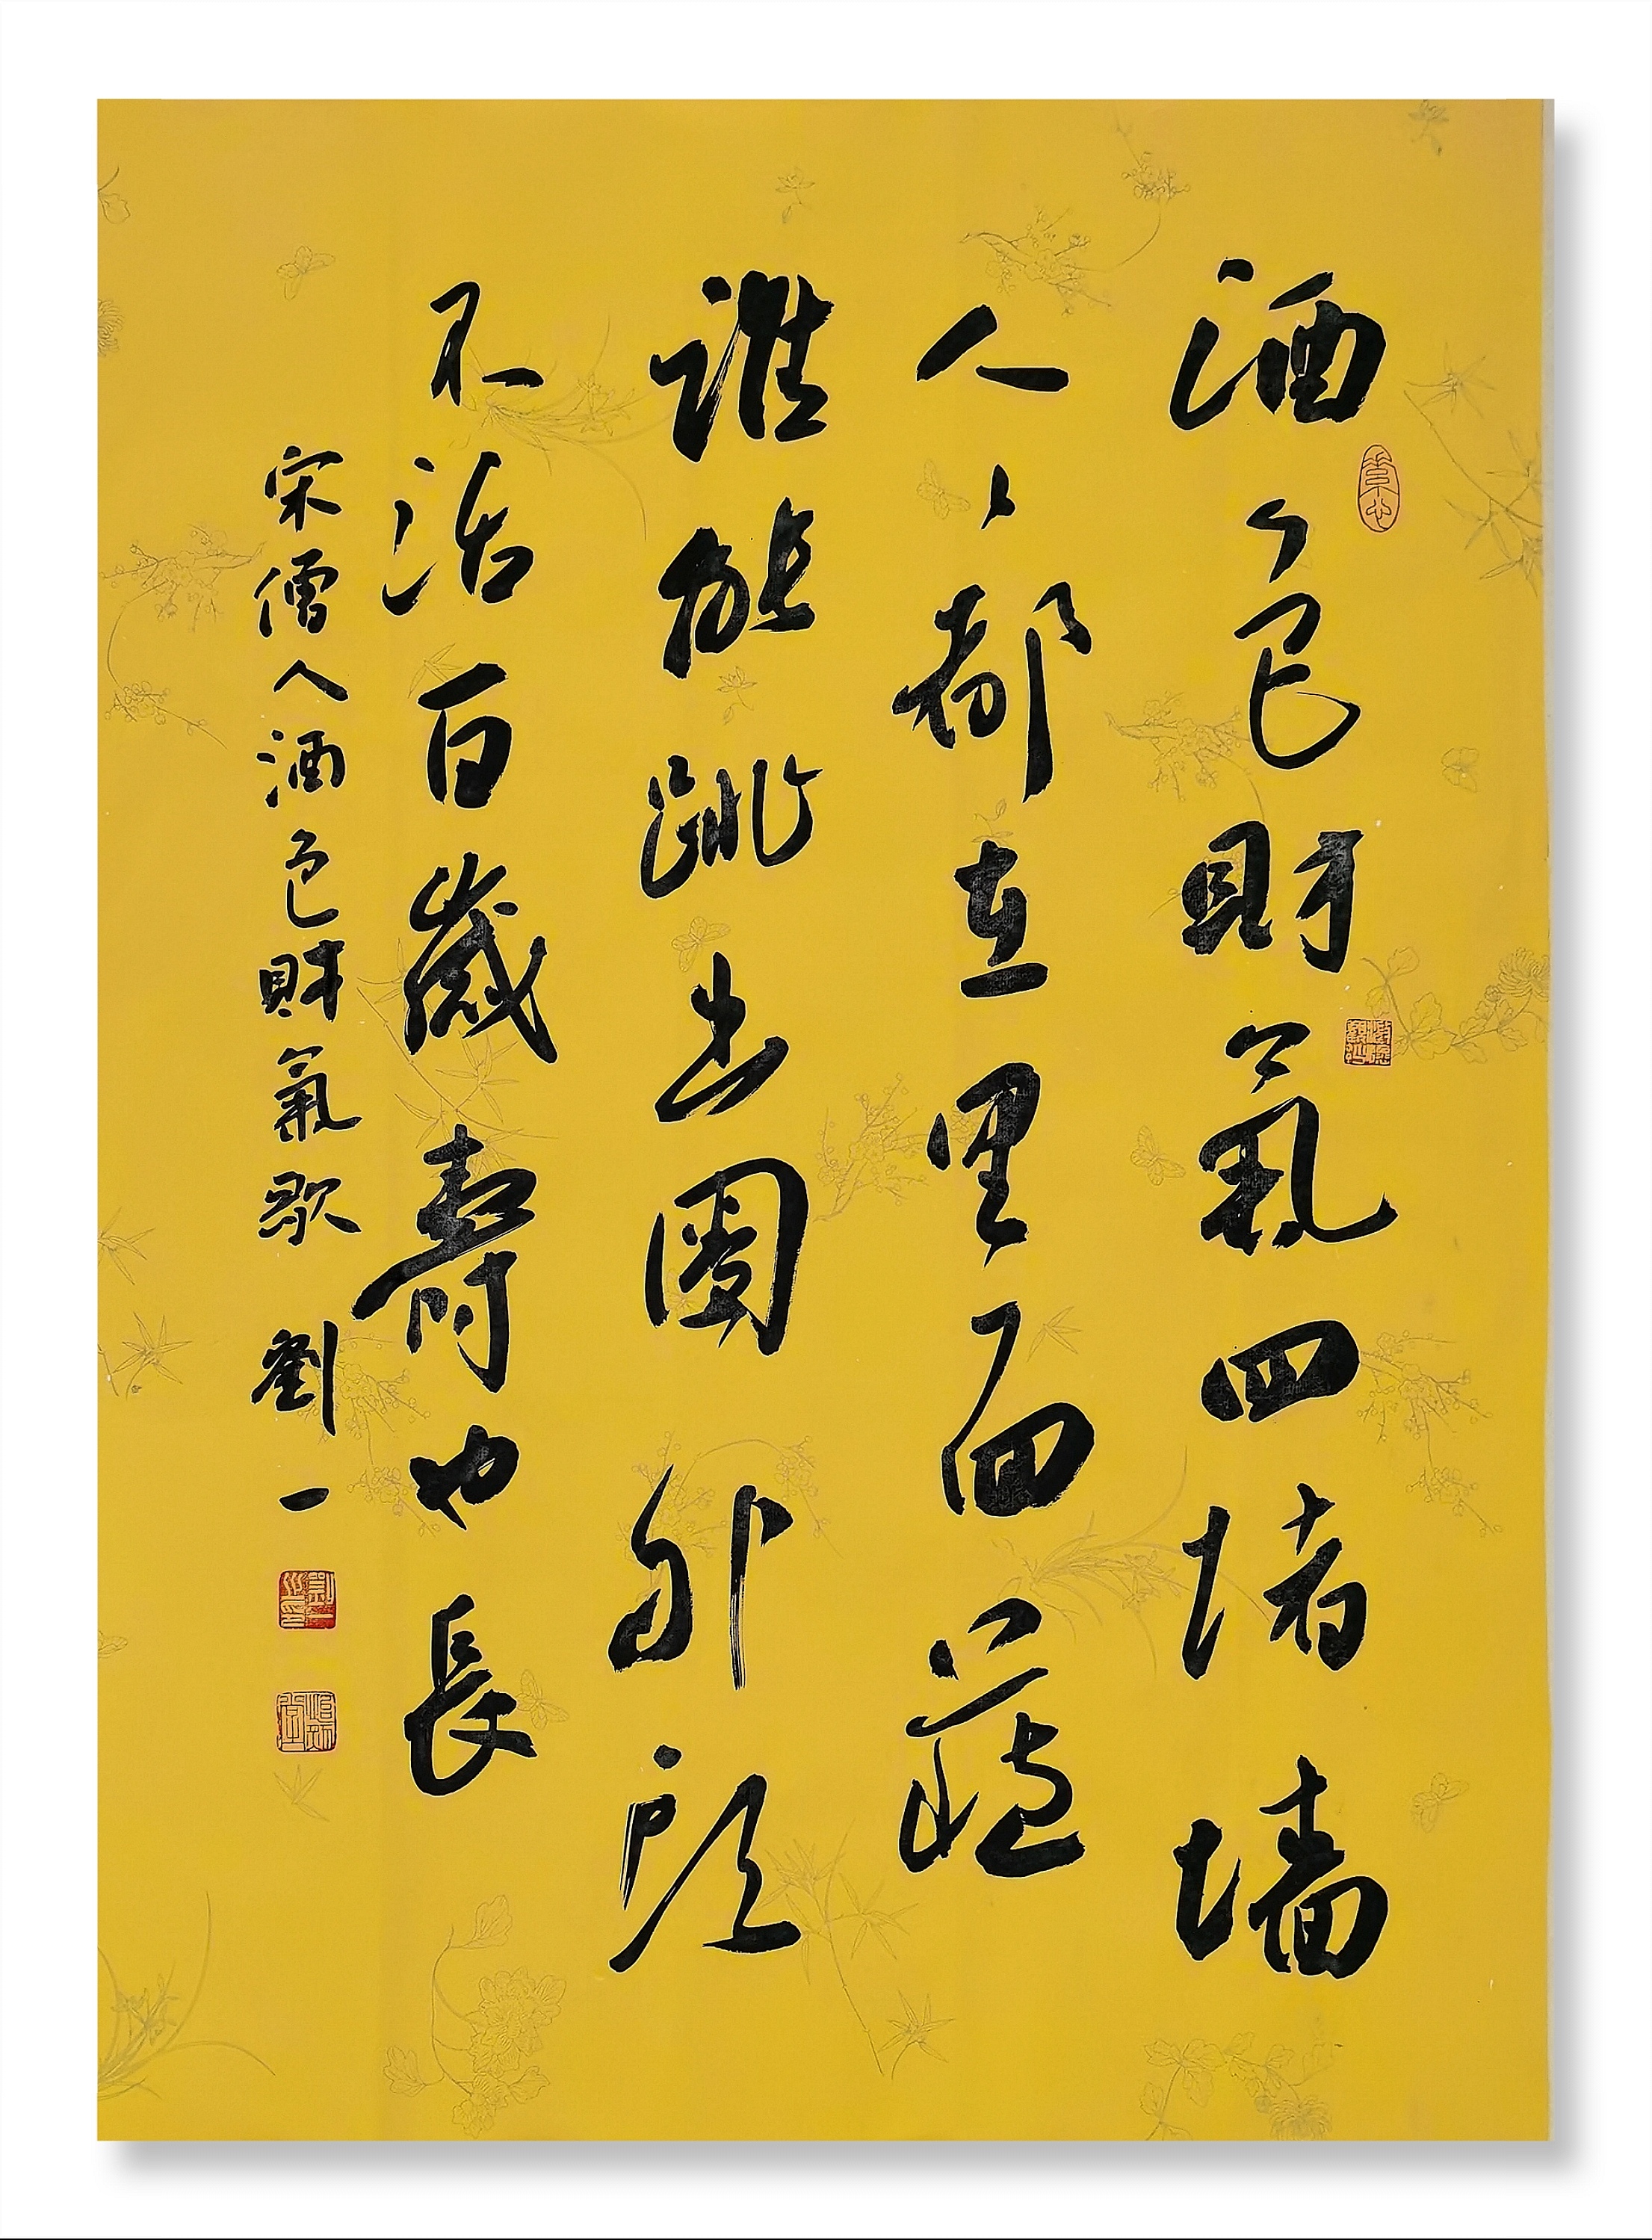 酒色財氣四堵墙
人〻都在里面藏
誰能跳出圈外頭
不活百歲壽也長
宋僧人酒色財氣歌 劉一